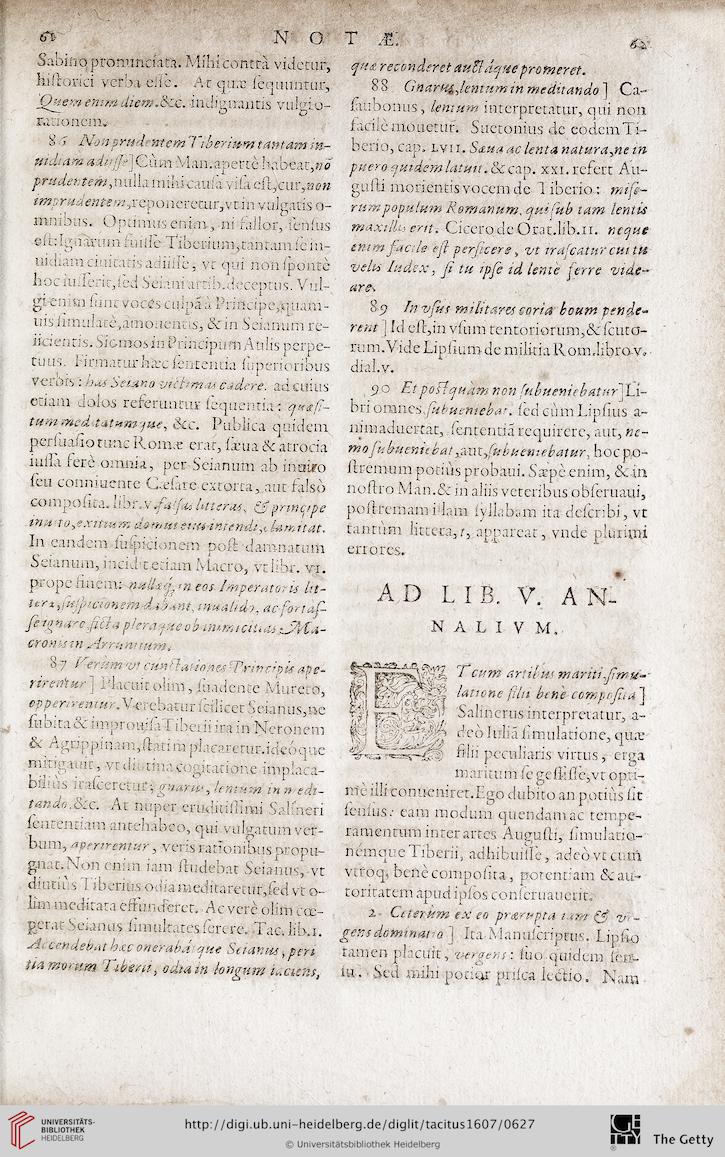 61
N O T Æ.
62
Sabino pronunciata. Mihi contrà videtur,
historici verba esse. At quæ sequuntur,
Quem enim diem. &c. indignantis vulgi o-
rationem.
86 Non prudentem Tiberium tantam in-
uidiam adiisse] Cùm Man. apertè habeat, nō
prudentem, nulla mihi causa visa est, cur, non
imprudentem, reponeretur, vt in vulgatis o-
mnibus. Optimus enim, ni fallor, sensus
est: Ignarum fuisse Tiberium, tantam se in-
uidiam ciuitatis adiisse, vt qui non spontè
hoc iusserit, sed Seiani artib. deceptus. Vul-
gi enim sunt voces culpā à Principe, quam-
uis simulatè, amouentis, & in Seianum re-
iicientis. Sic mos in Principum Aulis perpe-
tuus. Firmatur hæc sententia superioribus
verbis: has Seiano victimas cadere. ad cuius
etiam dolos referuntur sequentia: quæsi-
tum meditatumque, &c. Publica quidem
persuasio tunc Romæ erat, sæua & atrocia
iussa ferè omnia, per Seianum ab inuito
seu conniuente Cæsare extorta, aut falsò
composita. libr. v. falsas litteras, & principe
inuito, exitium domui eius intendi, clamitat.
In eandem suspicionem post damnatum
Seianum, incidit etiam Macro, vt libr. VI.
prope finem: nullæq́; in eos Imperatoris lit-
teræ, suspicionem dabant, inualido, ac fortas-
se ignaro ficta pleraque ob inimicitias Ma-
cronis in Arruntium.
87 Verùm vt cunctationes Principis ape-
rirentur] Placuit olim, suadente Mureto,
opperirentur. Verebatur scilicet Seianus, ne
subita & improuisa Tiberii ira in Neronem
& Agrippinam, statim placaretur. ideóque
mitigauit, vt diutina cogitatione implaca-
biliùs irasceretur; gnarus, lentum in medi-
tando. &c. At nuper eruditissimi Salineri
sententiam antehabeo, qui vulgatum ver-
bum, aperirentur, veris rationibus propu-
gnat. Non enim iam studebat Seianus, vt
diutiùs Tiberius odia meditaretur, sed vt o-
lim meditata effunderet. Ac verè olim cœ-
perat Seianus simultates serere. Tac. lib. 1.
Accendebat hæc onerabátque Seianus, peri
tia morum Tiberii, odia in longum iaciens,
quæ reconderet auctáque promeret.
88 Gnarus, lentum in meditando] Ca-
saubonus, lentum interpretatur, qui non
facilè mouetur. Suetonius de eodem Ti-
berio, cap. LVII. Sæua ac lenta natura, ne in
puero quidem latuit. & cap. XXI. refert Au-
gusti morientis vocem de Tiberio: mise-
rum populum Romanum, qui sub tam lentis
maxillis erit. Cicero de Orat. lib. II. neque
enim facile est perficere, vt irascatur cui tu
velis Iudex, si tu ipse id lentè ferre vide-
are.
89 In vsus militares coria boum pende-
rent] Id est, in vsum tentoriorum, & scuto-
rum. Vide Lipsium de militia Rom. libro v.
dial. v.
90 Et postquàm non subueniebatur] Li-
bri omnes, subueniebat. sed cùm Lipsius a-
nimaduertat, sententiā requirere, aut, ne-
mo subueniebat, aut, subueniebatur, hoc po-
stremum potiùs probaui. Sæpè enim, & in
nostro Man. & in aliis veteribus obseruaui,
postremam illam syllabam ita describi, vt
tantùm littera, t, appareat, vnde plurimi
errores.
AD LIB. V. AN-
NALIVM.
ET cum artibus mariti, simu-
latione filii benè composita]
Salinerus interpretatur, a-
deò Iuliā simulatione, quæ
filii peculiaris virtus, erga
maritum se gessisse, vt opti-
mè illi conueniret. Ego dubito an potiùs sit
sensus: eam modum quendam ac tempe-
ramentum inter artes Augusti, simulatio-
némque Tiberii, adhibuisse, adeò vt cum
vtroq; benè composita, potentiam & au-
toritatem apud ipsos conseruauerit.
2 Ceterùm ex eo prærupta iam & vr-
gens dominatio] Ita Manuscriptus. Lipsio
tamen placuit, vergens: suo quidem sen-
su. Sed mihi potior prisca lectio. Nam
UNIVERSITÄTS-
BIBLIOTHEK
HEIDELBERG
http://digi.ub.uni-heidelberg.de/diglit/tacitus1607/0627
© Universitätsbibliothek Heidelberg
The Getty